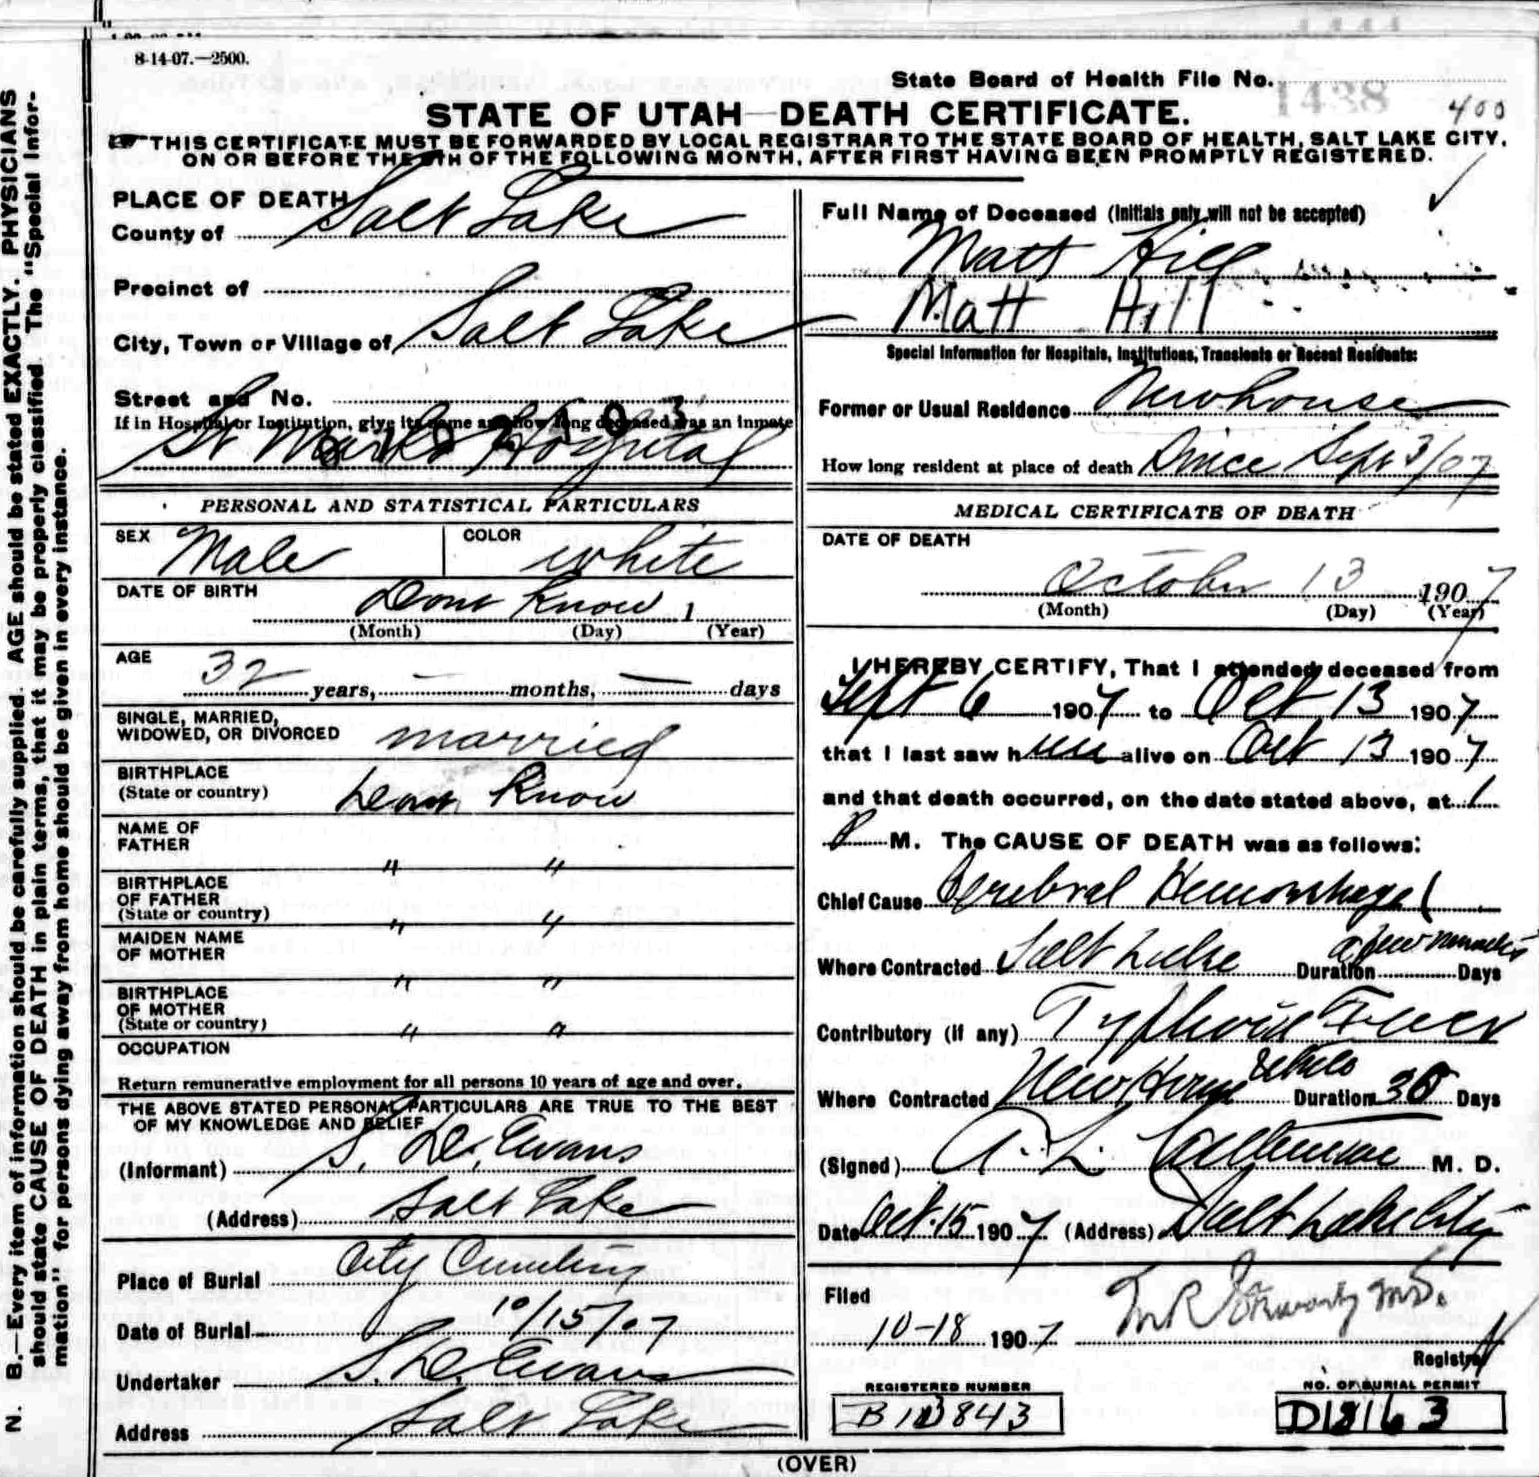 8-14-07.—2500.
State Board of Health File No.
1438
400
STATE OF UTAH—DEATH CERTIFICATE.
☞ THIS CERTIFICATE MUST BE FORWARDED BY LOCAL REGISTRAR TO THE STATE BOARD OF HEALTH, SALT LAKE CITY,
ON OR BEFORE THE 5TH OF THE FOLLOWING MONTH, AFTER FIRST HAVING BEEN PROMPTLY REGISTERED.
N. B.—Every item of information should be carefully supplied. AGE should be stated EXACTLY. PHYSICIANS
should state CAUSE OF DEATH in plain terms, that it may be properly classified. The "Special Infor-
mation" for persons dying away from home should be given in every instance.
PLACE OF DEATH
County of Salt Lake
Precinct of
City, Town or Village of Salt Lake
Street and No.
If in Hospital or Institution, give its name and how long deceased was an inmate
St Marks Hospital
PERSONAL AND STATISTICAL PARTICULARS
SEX Male COLOR white
DATE OF BIRTH Dont Know 1
(Month) (Day) (Year)
AGE
32 years, — months, — days
SINGLE, MARRIED,
WIDOWED, OR DIVORCED married
BIRTHPLACE
(State or country) Dont Know
NAME OF
FATHER " "
BIRTHPLACE
OF FATHER
(State or country) " "
MAIDEN NAME
OF MOTHER " "
BIRTHPLACE
OF MOTHER
(State or country) " "
OCCUPATION
Return remunerative employment for all persons 10 years of age and over.
THE ABOVE STATED PERSONAL PARTICULARS ARE TRUE TO THE BEST
OF MY KNOWLEDGE AND BELIEF
(Informant) S. D. Evans
(Address) Salt Lake
Place of Burial City Cemetery
Date of Burial 10/15/07
Undertaker S. D. Evans
Address Salt Lake
Full Name of Deceased (Initials only will not be accepted)
Matt Hill
Matt Hill
Special Information for Hospitals, Institutions, Transients or Recent Residents:
Former or Usual Residence Newhouse
How long resident at place of death Since Sept 3/07
MEDICAL CERTIFICATE OF DEATH
DATE OF DEATH
October 13 1907
(Month) (Day) (Year)
I HEREBY CERTIFY, That I attended deceased from
Sept 6 1907 to Oct 13 1907
that I last saw him alive on Oct 13 1907
and that death occurred, on the date stated above, at 1
P M. The CAUSE OF DEATH was as follows:
Chief Cause Cerebral Hemorrhage
Where Contracted Salt Lake Duration a few minutes Days
Contributory (if any) Typhoid Fever
Where Contracted Duration Days
(Signed) A. L. M. D.
Date Oct. 15 1907 (Address) Salt Lake City
Filed
10-18 1907
Registrar
REGISTERED NUMBER
NO. OF BURIAL PERMIT
(OVER)